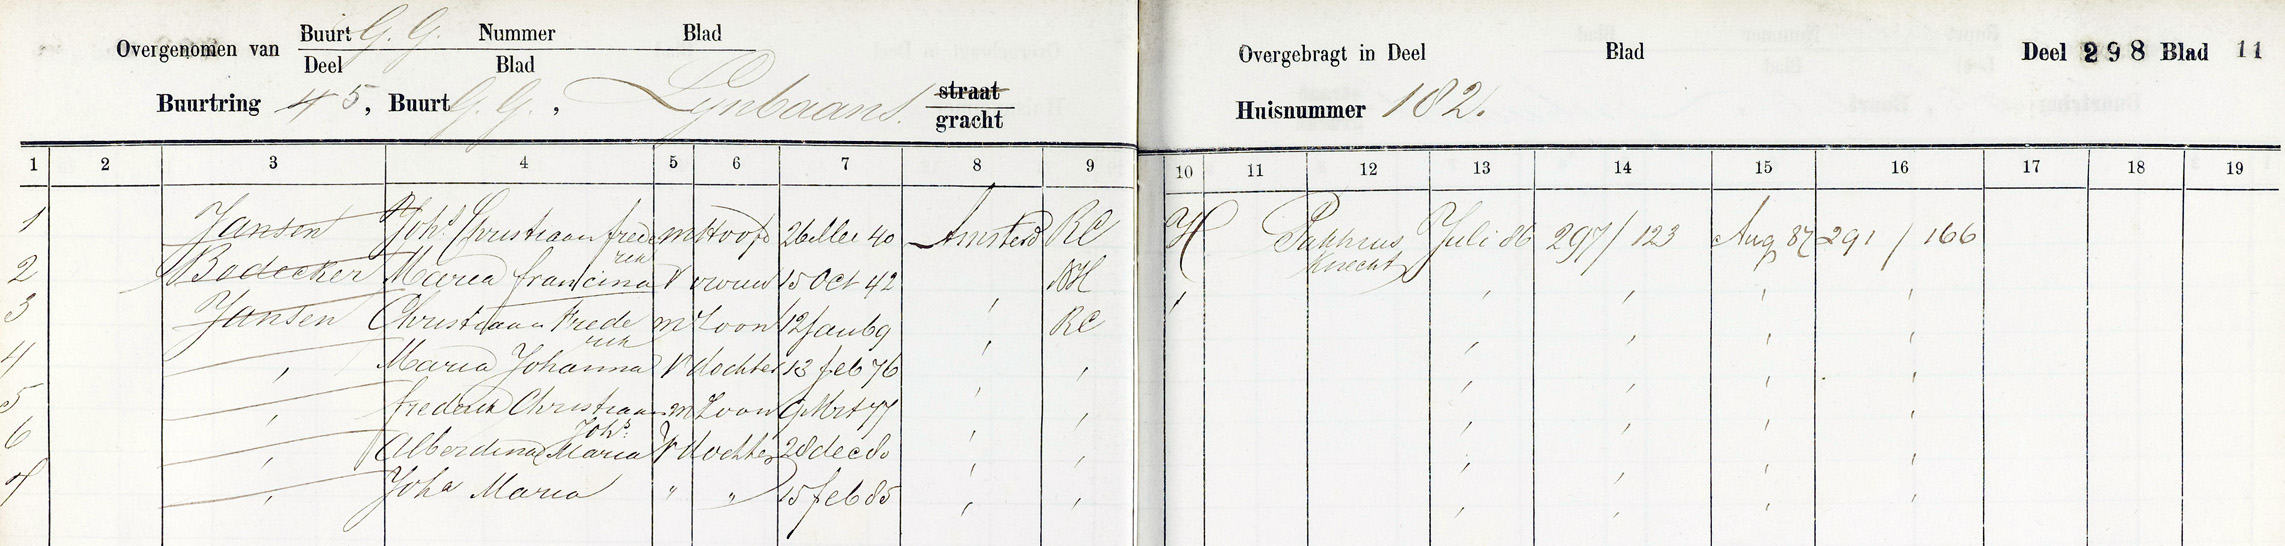 Overgenomen van Buurt G. G. Nummer Blad
Deel Blad
Buurtring 45, Buurt G. G., Lynbaans. straat
gracht
Overgebragt in Deel Blad Deel 298 Blad 11
Huisnummer 182.
1 2 3 4 5 6 7 8 9 10 11 12 13 14 15 16 17 18 19
1 Jansen Johs Christiaan frede m Hoofd 40 Amsterd RC H Pakhuis Juli 86 297/123 Aug 87 291/166
rik Knecht
2 Bodecker Maria francina v vrouw 15 Oct 42 ' NH ' ' ' ' '
3 Jansen Christiaan Frede m Zoon 12 Jan 69 ' RC ' ' ' '
rik
4 ' Maria Johanna v dochter 13 feb 76 ' ' ' ' ' '
5 ' frederik Christiaan m Zoon 9 Mrt 77 ' ' ' ' '
Johs
6 ' Alberdina Maria v dochter 28 dec 80 ' ' ' ' ' '
7 ' Joha Maria " " 15 feb 85 ' ' ' ' ' '